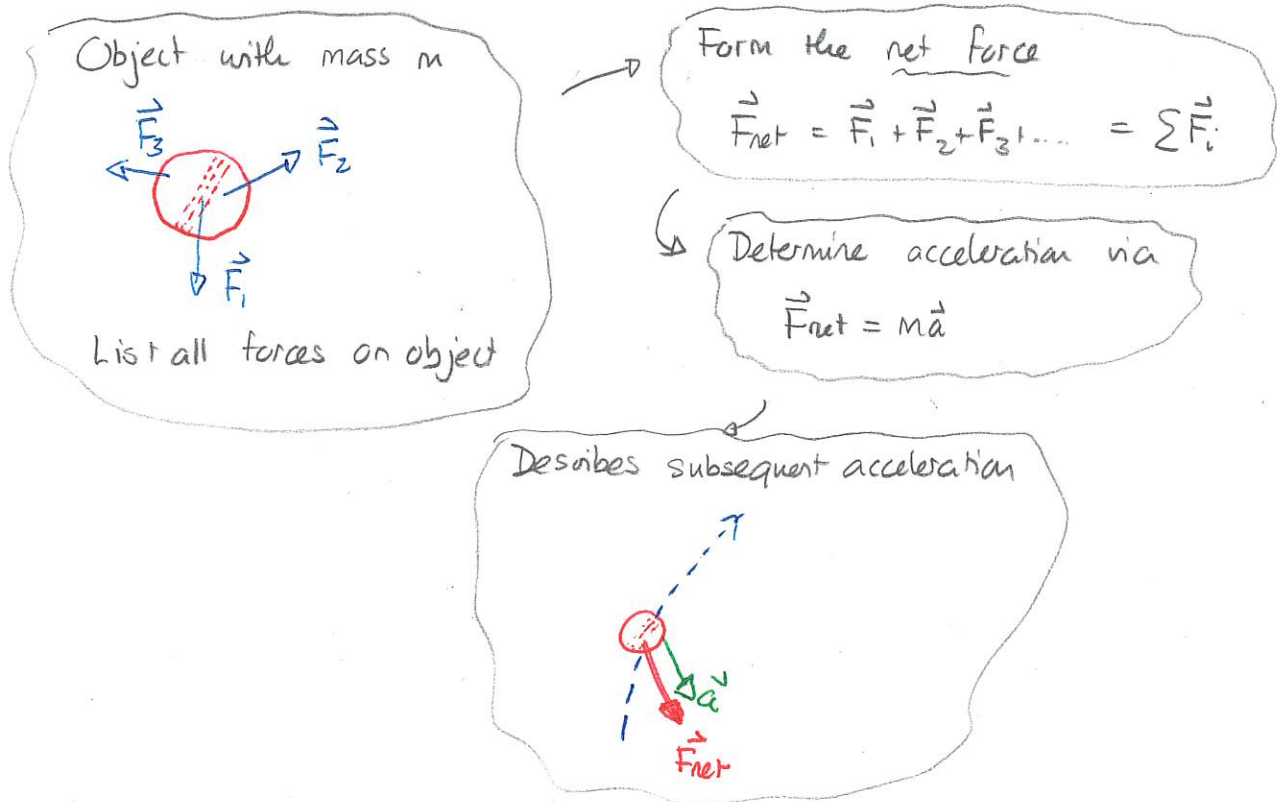 Object with mass m
F⃗₃
F⃗₂
F⃗₁
List all forces on object
Form the net force
F⃗net = F⃗₁ + F⃗₂ + F⃗₃ + .... = ∑F⃗ᵢ
Determine acceleration via
F⃗net = ma⃗
Desribes subsequent acceleration
a⃗
F⃗net